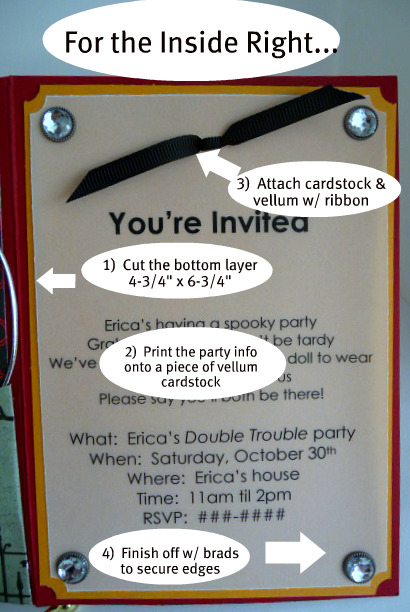 For the Inside Right...
3) Attach cardstock &
vellum w/ ribbon
You're Invited
1) Cut the bottom layer
4-3/4" x 6-3/4"
Erica's having a spooky party
be tardy
We've doll to wear
2) Print the party info
onto a piece of vellum
cardstock
us
Please say you'll both be there!
What: Erica's Double Trouble party
When: Saturday, October 30th
Where: Erica's house
Time: 11am til 2pm
RSVP: ###-####
4) Finish off w/ brads
to secure edges